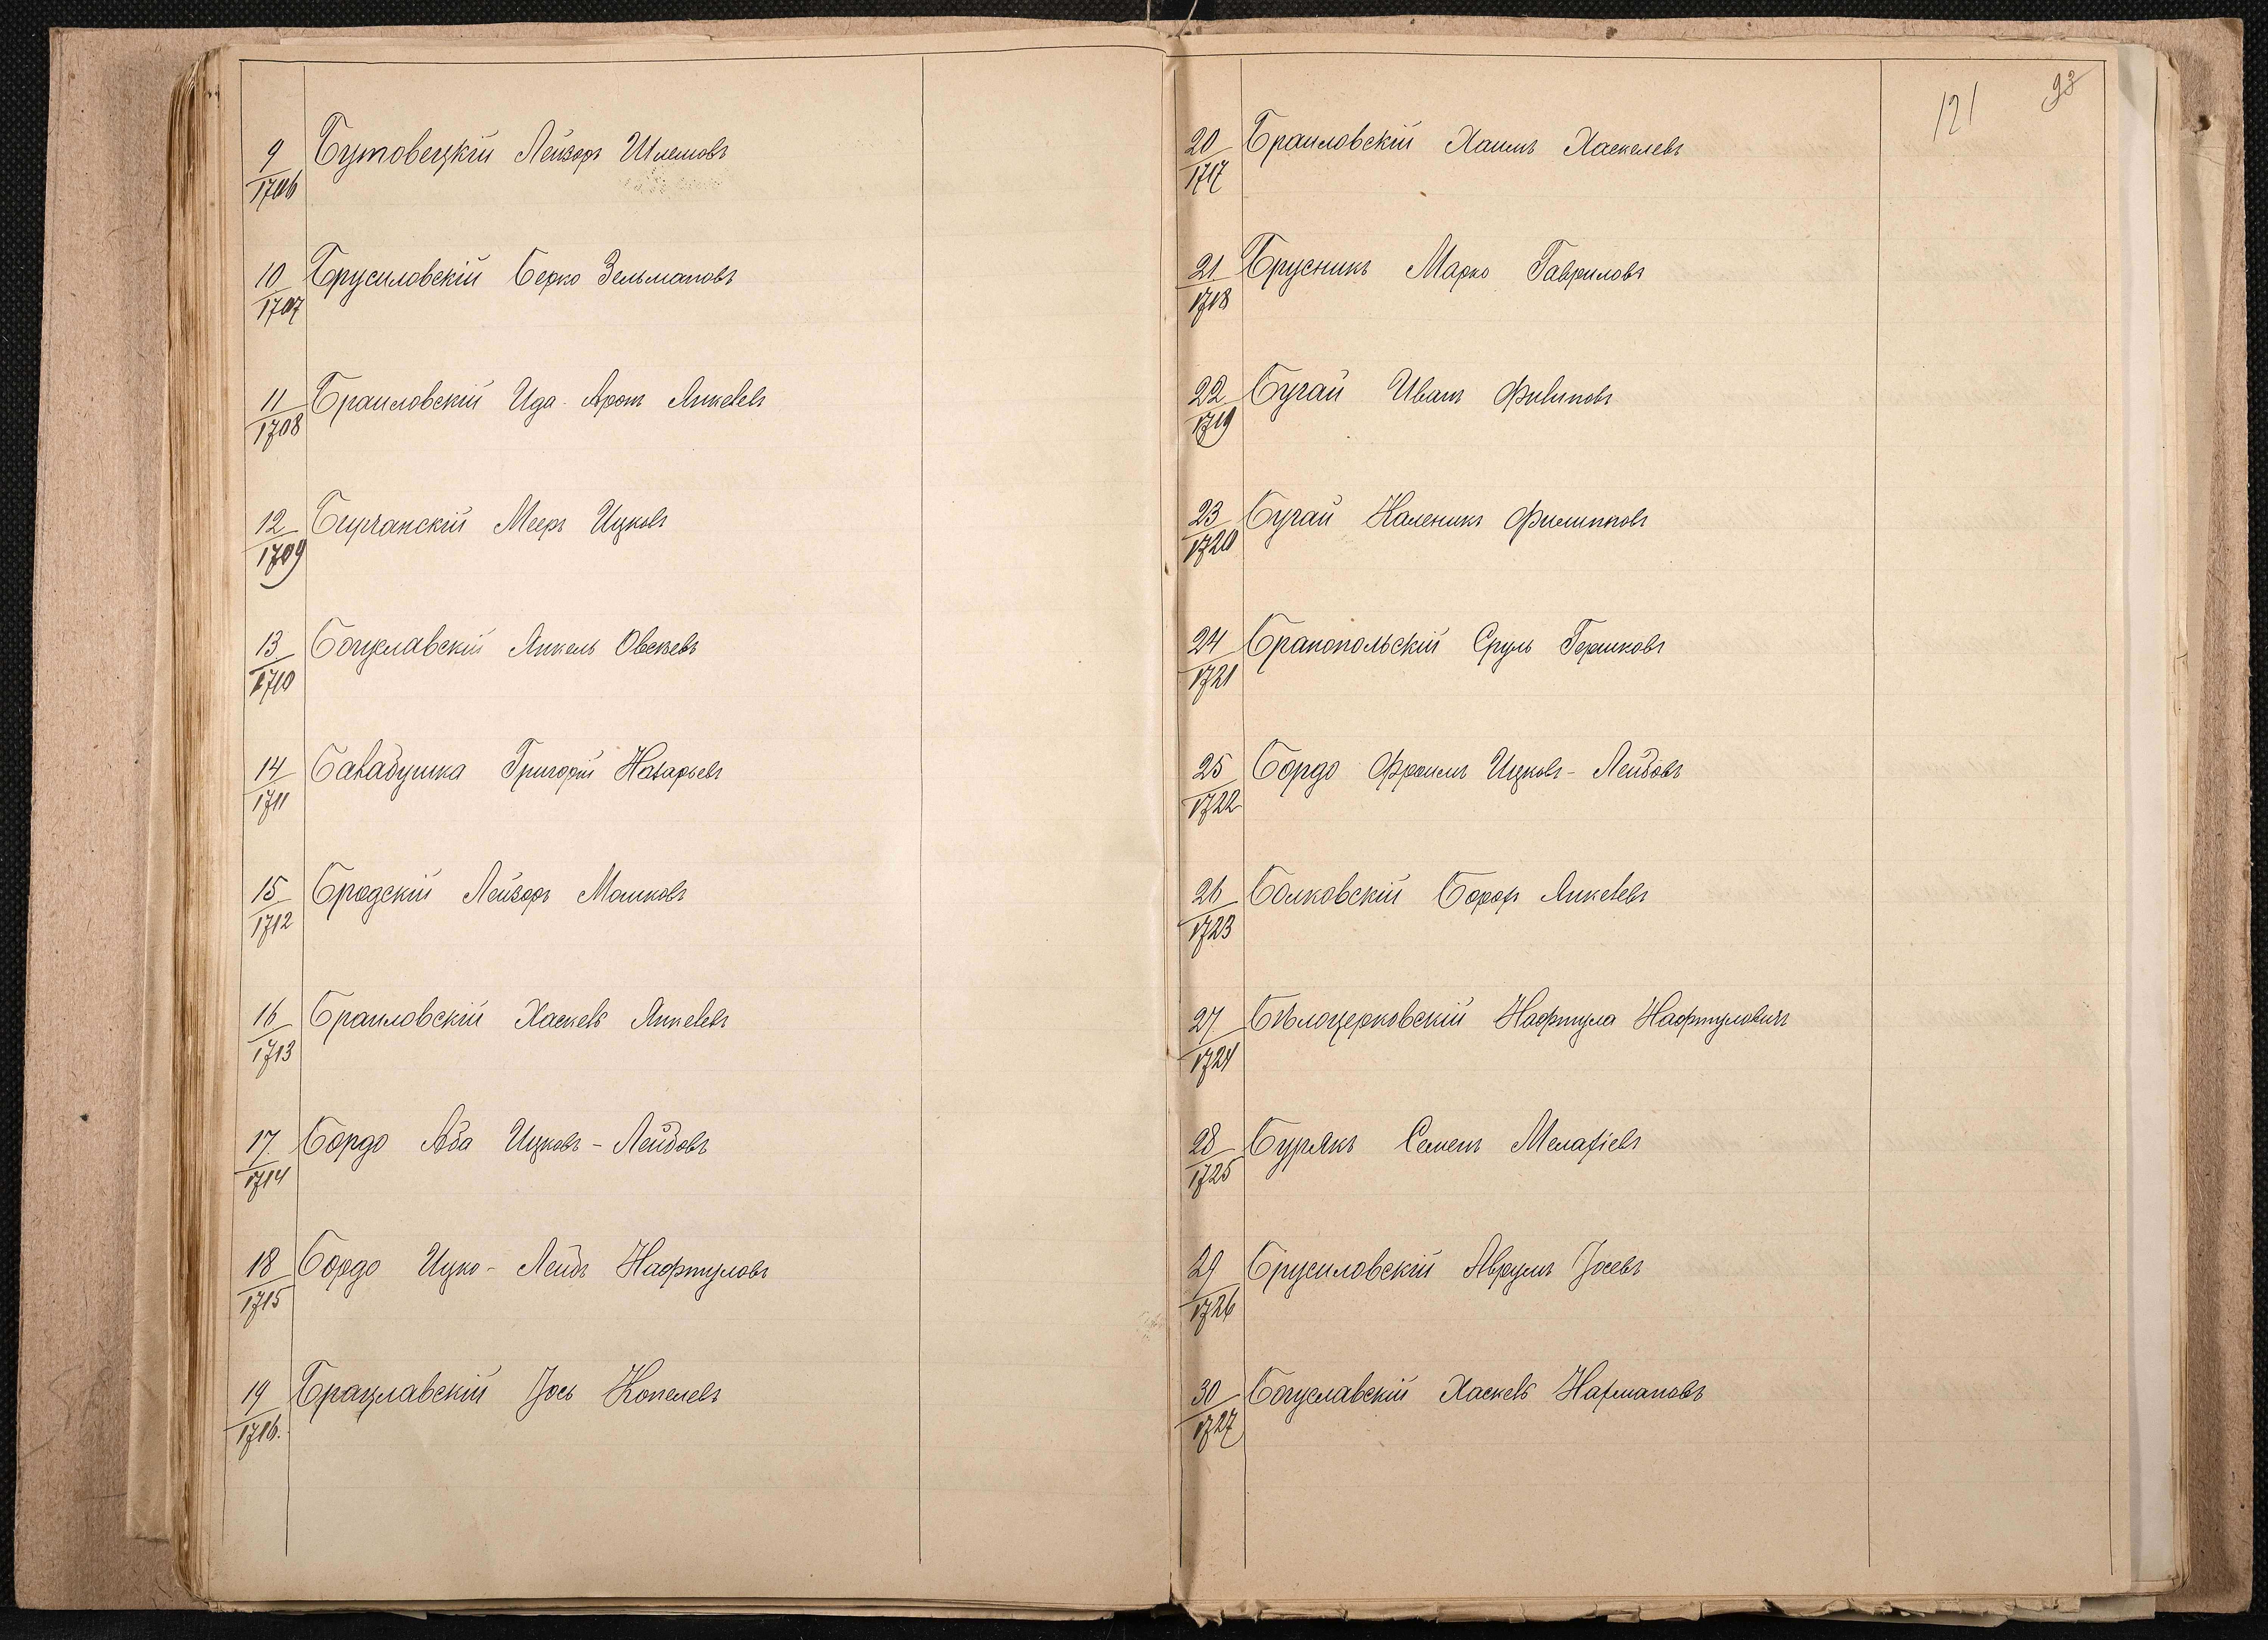 9 Бутовецкій Лейзоръ Шлемовъ
1706
10 Брусиловскій Берко Зельмановъ
1707
11 Браиловскій Ида-Аронъ Янкелевъ
1708
12 Бершанскій Мееръ Ицковъ
1709
13 Богуславскій Янкель Овсѣевъ
1710
14 Балабушка Григорій Назарьевъ
1711
15 Бродскій Лейзоръ Мошковъ
1712
16 Браиловскій Хаскель Янкелевъ
1713
17 Бордо Аба Ицковъ-Лейбовъ
1714
18 Бордо Ицко-Лейбъ Нафтуловъ
1715
19 Брацлавскій Іось Копелевъ
1716.
121 93
20 Браиловскій Хаимъ Хаскелевъ
1717
21 Брусникъ Марко Гавриловъ
1718
22 Бугай Иванъ Филиповъ
1719
23 Бугай Каленикъ Филипповъ
1720
24 Бранопольскій Сруль Гершковъ
1721
25 Бордо Фроимъ Ицковъ-Лейбовъ
1722
26 Волковскій Борохъ Янкелевъ
1723
27 Бѣлоцерковскій Нафтула Нафтуловичъ
1724
28 Бурякъ Семенъ Малахіевъ
1725
29 Брусиловскій Аврумъ Іосевъ
1726
30 Богуславскій Хаскель Нахмановъ
1727